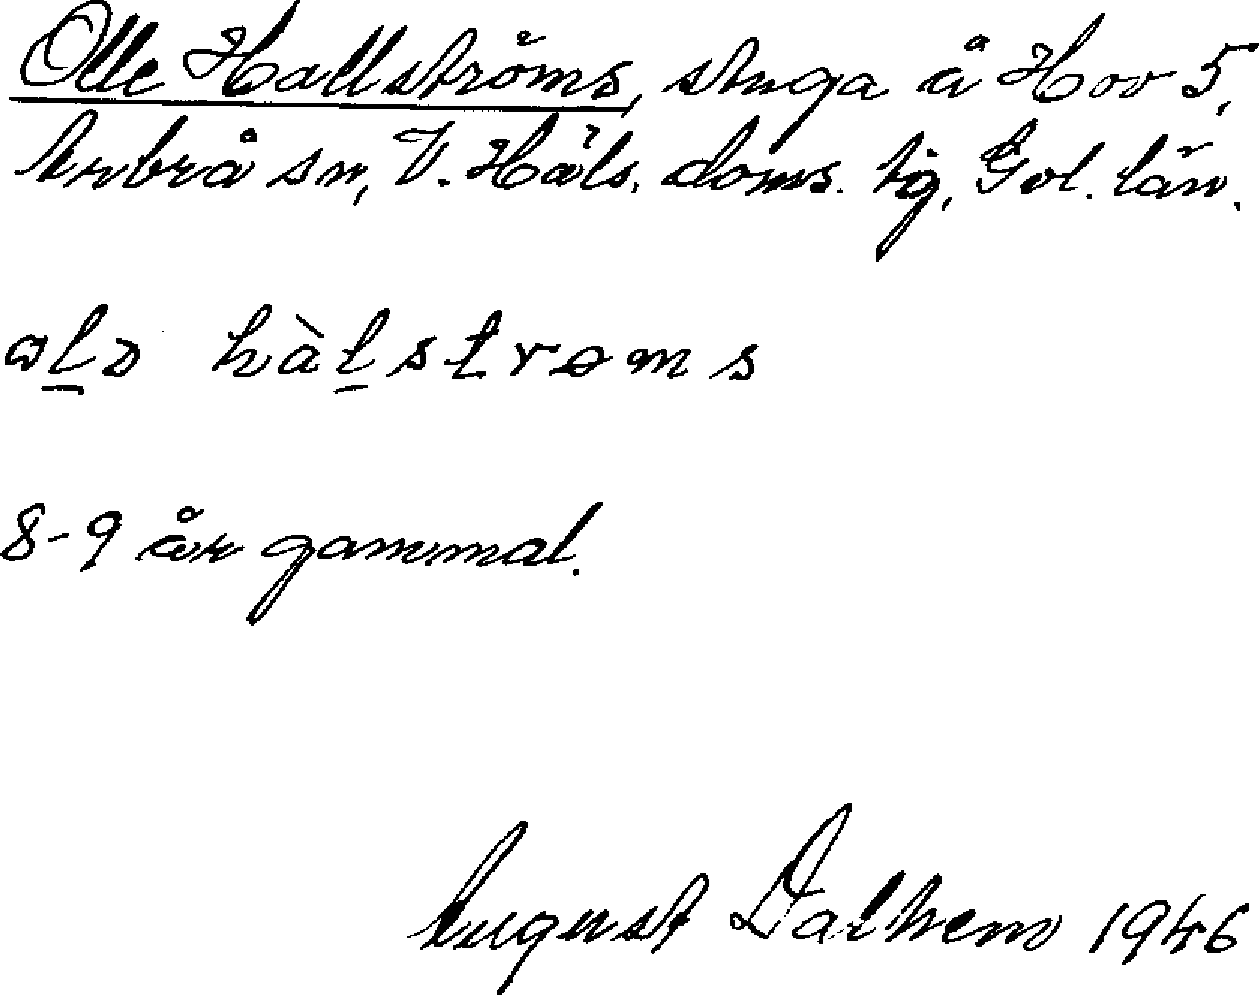 Olle Hallströms, stuga å Hov 5,
Arbrå sn, V. Häls. doms. hg, Gvl. län.
ɑlɔ hàlstrɵms
8-9 år gammal.
August Dalhem 1946